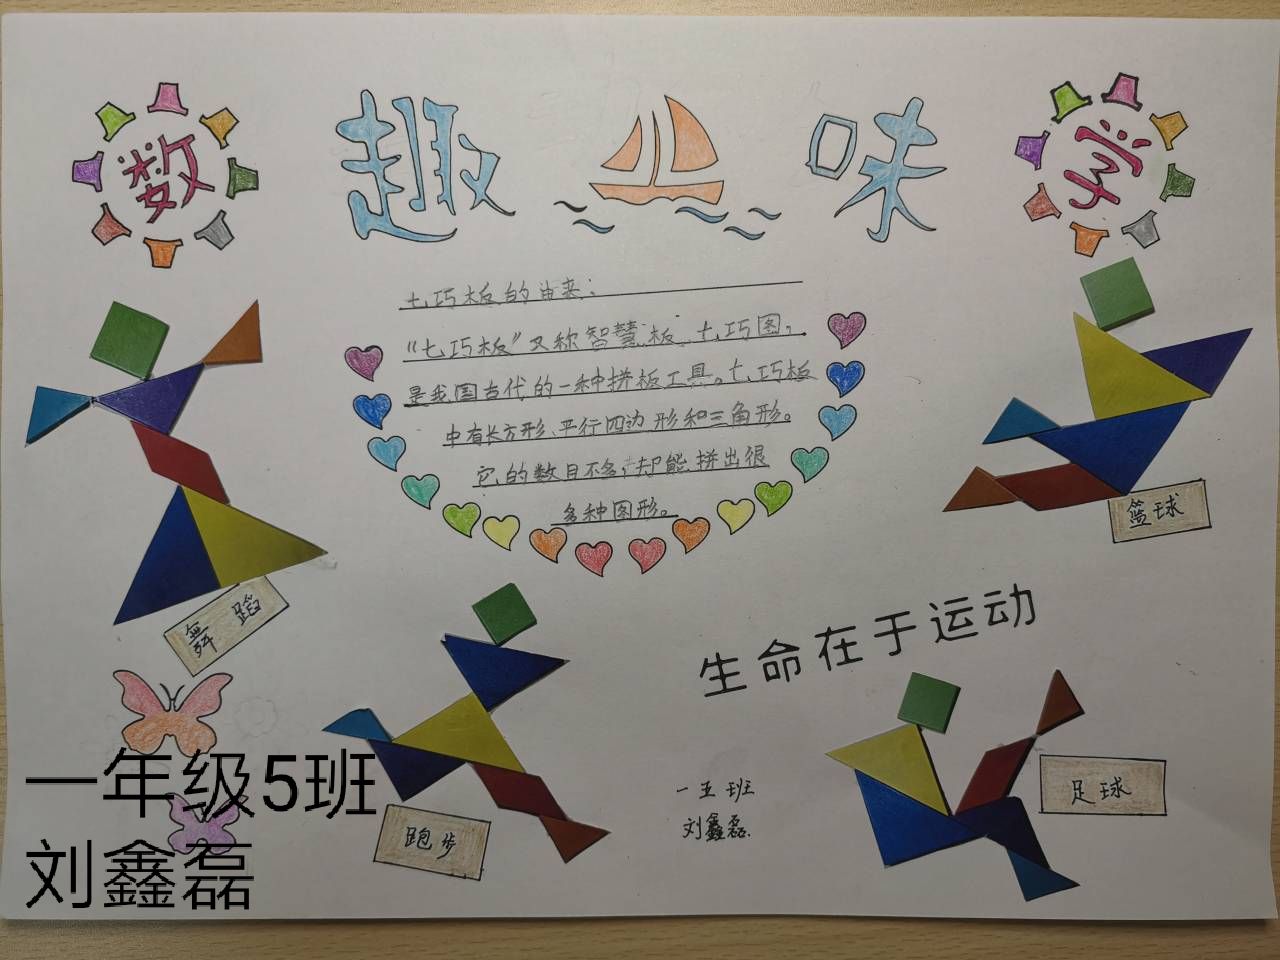 数 趣 味 学
七巧板的由来:
“七巧板”又称智慧板、七巧图,
是我国古代的一种拼板工具。七巧板
中有长方形、平行四边形和三角形。
它的数目不多,却能拼出很
多种图形。
篮球
舞蹈
生命在于运动
跑步
足球
一五班
刘鑫磊.
一年级5班
刘鑫磊